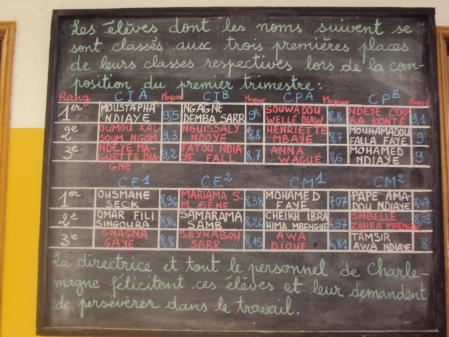 Les élèves dont les noms suivent se
sont classés aux trois premières places
de leurs classes respectives lors de la com-
position du premier trimestre :
CIA CIB CPA CPB
Rang Moyenne Moyenne Moyenne Moyenne
1er MOUSTAPHA NDIAYE 9,5 NGAGNE DEMBA SARR 9 SOUWADOU WELLE DIAW 8,8 NDEYE COU RA KONTE 9,1
2e OUMOU KAL SOUM NGOM 9,3 NGUISSALY NDOYE 8,8 HENRIETTE MBAYE 8,7 MOUHAMADOU FALLA FAYE 9
3e NDEYE MA- GUETTE DIA- GNE 9,2 FATOU NDIA- YE FALL 8,7 ANNA WAGUE 8,6 MOHAMED NDIAYE 9
CE1 CE2 CM1 CM2
1er OUSMANE SECK 8,96 MARIAMA S. M. SENE 8,38 MOHAMED FAYE 7,07 PAPE AMA- DOU NDIAYE
2e OMAR FILI SINGOURA 8,94 SAMARAMA SAMB 8,26 CHEIKH IBRA HIMA MBENGUE 6,97 SABELLE ZAHRA MBENGUE 8,05
3e GNAGNA GAYE 8,8 SEYNABOU SARR 8,15 AWA DIOUF 6,81 TAMSIR AWA NDIAYE 8
La directrice et tout le personnel de Charle-
magne félicitent ces élèves et leur demandent
de persévérer dans le travail.